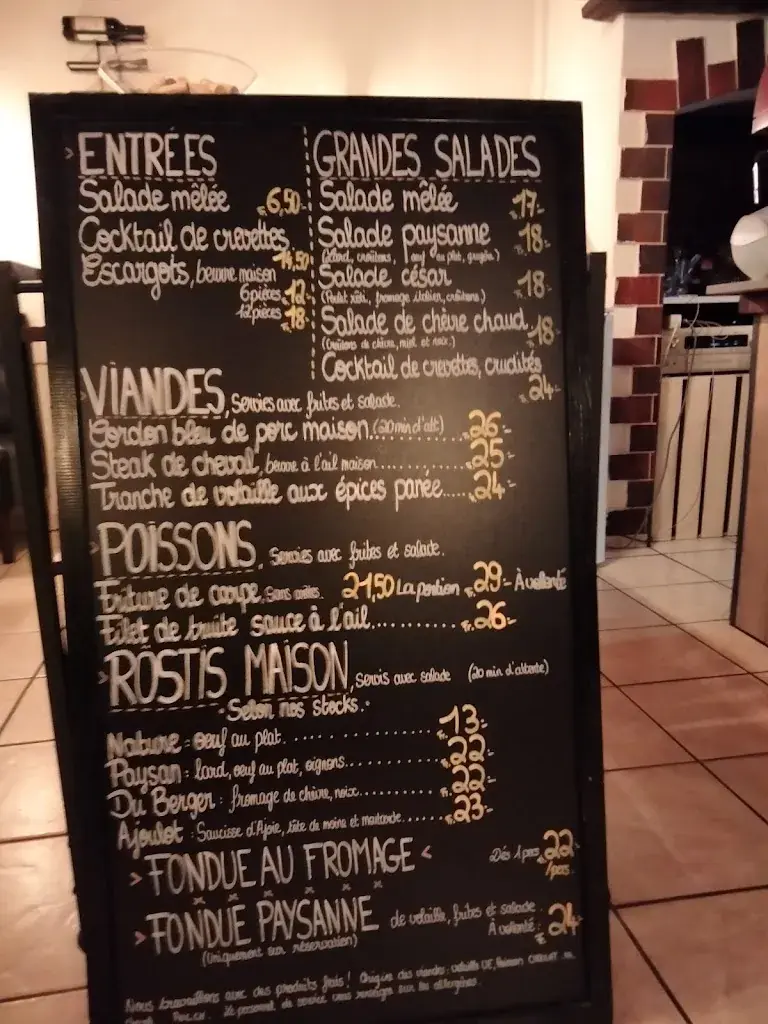 ENTRÉES
Salade mêlée 6,50.-
Cocktail de crevettes
14,50
Escargots, beurre maison
6 pièces 12.-
12 pièces 18.-
GRANDES SALADES
Salade mêlée 17.-
Salade paysanne 18.-
(lard, croûtons, oeuf au plat, gruyère)
Salade césar 18.-
(Poulet rôti, fromage italien, croûtons)
Salade de chèvre chaud 18.-
(Croûtons de chèvre, miel et noix.)
Cocktail de crevettes, crudités
24.-
VIANDES, Servies avec frites et salade.
Cordon bleu de porc maison..(20 min d'att)....... 26.-
Steak de cheval, beurre à l'ail maison.............. 25.-
Tranche de volaille aux épices panée..... 24.-
POISSONS, Servies avec frites et salade.
Friture de carpe, Sans arêtes. 21,50 La portion 29.- À volonté
Filet de truite sauce à l'ail............ Fr. 26.-
RÖSTIS MAISON, servis avec salade (20 min d'attente)
· Selon nos stocks. ·
Nature : oeuf au plat. . . . . . . . . . . . . . . 13.-
Paysan : lard, oeuf au plat, oignons............... 22.-
Du Berger : fromage de chèvre, noix............. 22.-
Ajoulot : Saucisse d'Ajoie, tête de moine et moutarde...... 23.-
> FONDUE AU FROMAGE < Dès 1 pers. 22
/pers.
> FONDUE PAYSANNE de volaille, frites et salade.
À volonté : 24.-
(Uniquement sur réservation)
Nous travaillons avec des produits frais ! Origine des viandes : volaille UE,
Le personnel de service vous renseigne sur les allergènes.